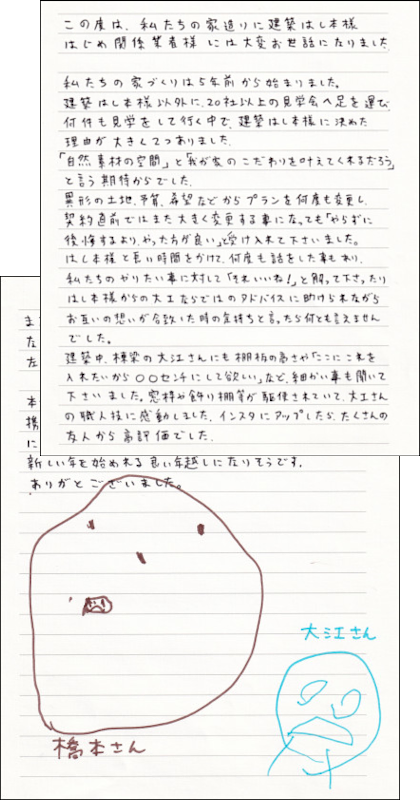 この度は、私たちの家造りに建築はし本様
はじめ関係業者様には大変お世話になりました。
私たちの家づくりは5年前から始まりました。
建築はし本様以外に、20社以上の見学会へ足を運び
何件も見学をして行く中で、建築はし本様に決めた
理由が大きく二つありました。
「自然素材の空間」と「我が家のこだわりを叶えてくれるだろう」
と言う期待からでした。
異形の土地、予算、希望などからプランを何度も変更し
契約直前ではまた大きく変更する事になっても「やらずに
後悔するより、やった方が良い」と受け入れて下さいました。
はし本様と長い時間をかけて、何度も話をした事もあり、
私たちのやりたい事に対して「それいいね!」と解って下さったり
はし本様からの大工ならではのアドバイスに助けられながら
お互いの想いが合致した時の気持ちと言ったら何とも言えません
でした。
建築中、棟梁の大江さんにも棚板の高さや「ここにこれを
入れたいから〇〇センチにして欲しい」など、細かい事も聞いて
下さいました。窓枠や飾り棚等が駆使されていて、大工さん
の職人技に感動しました。インスタにアップしたら、たくさんの
友人から高評価でした。
ま
た
左
本
携
に
新しい年を始めれる良い年越しになりそうです。
ありがとございました。
大江さん
橋本さん